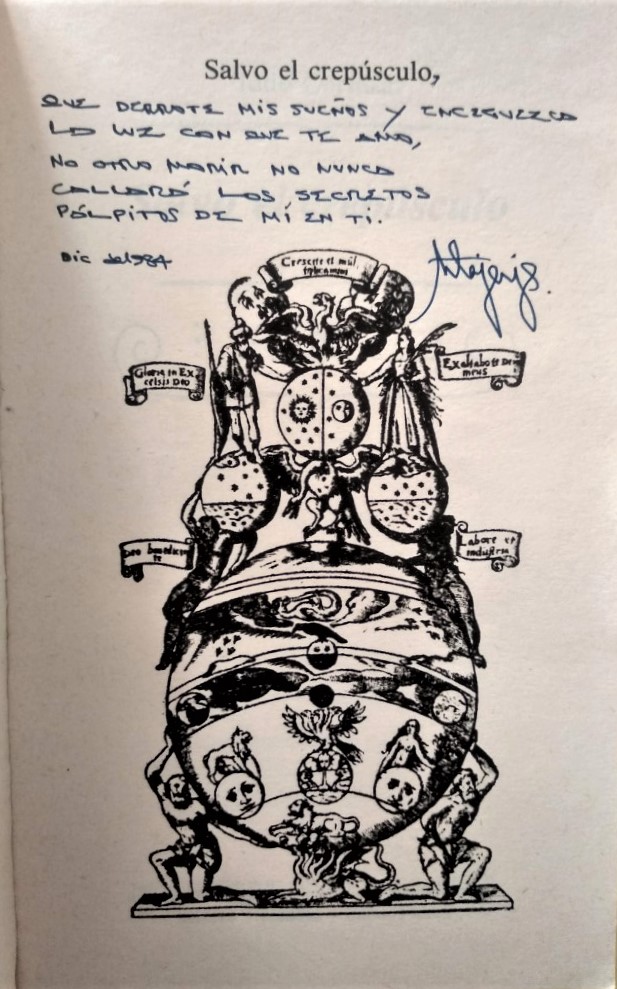 Salvo el crepúsculo,
QUE DERROTE MIS SUEÑOS Y ENCEGUEZCA
LA LUZ CON QUE TE AMO,
NO OTRO MORIR NO NUNCA
CALLARÁ LOS SECRETOS
PÁLPITOS DE MÍ EN TI.
Dic de 1984
Crescite et mul
Gloria in Ex
celsis Deo
Exaltabo te
meus
Deo
te
Labore et
industria